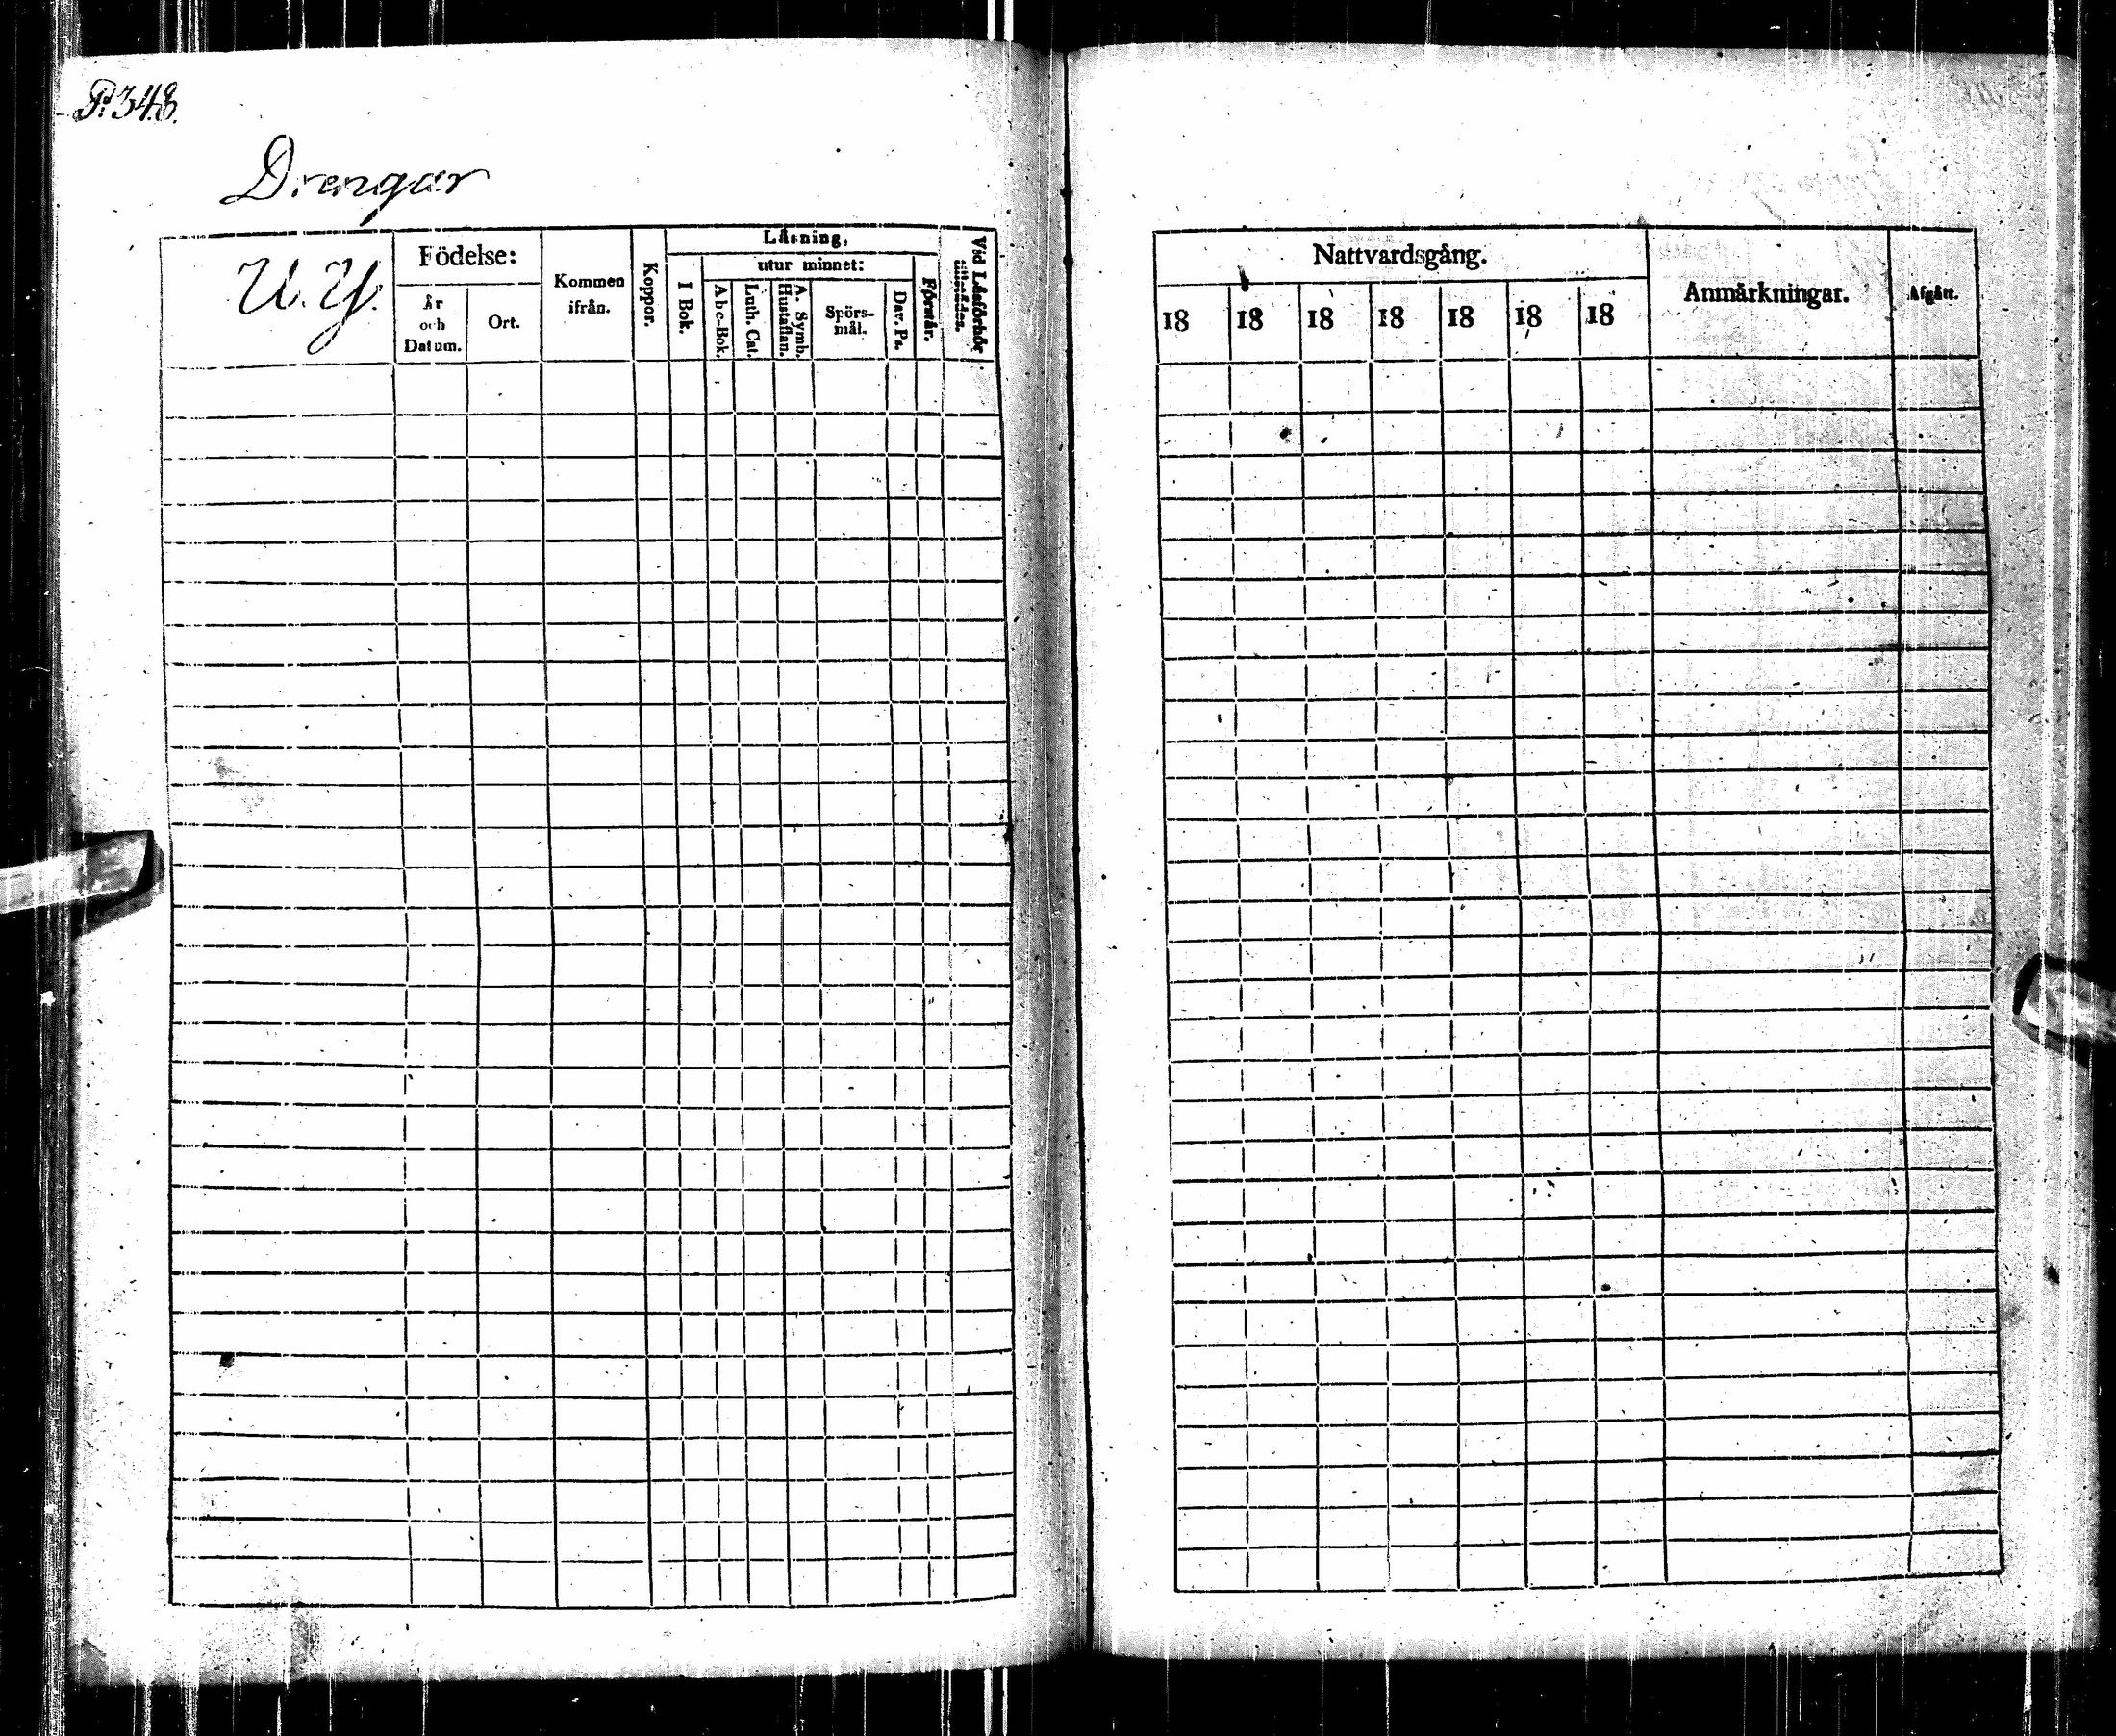 P. 348.
Drengar
U. Y.
Födelse:
År och Datum.
Ort.
Kommen ifrån.
Koppor.
Läsning,
I Bok.
utur minnet:
Abc-Bok.
Luth. Cat.
A. Symb. Hustaflan.
Spörsmål.
Dav. Ps.
Förstår.
Vid Läsförhör
Nattvardsgång.
18 18 18 18 18 18 18
Anmärkningar.
Afgått.